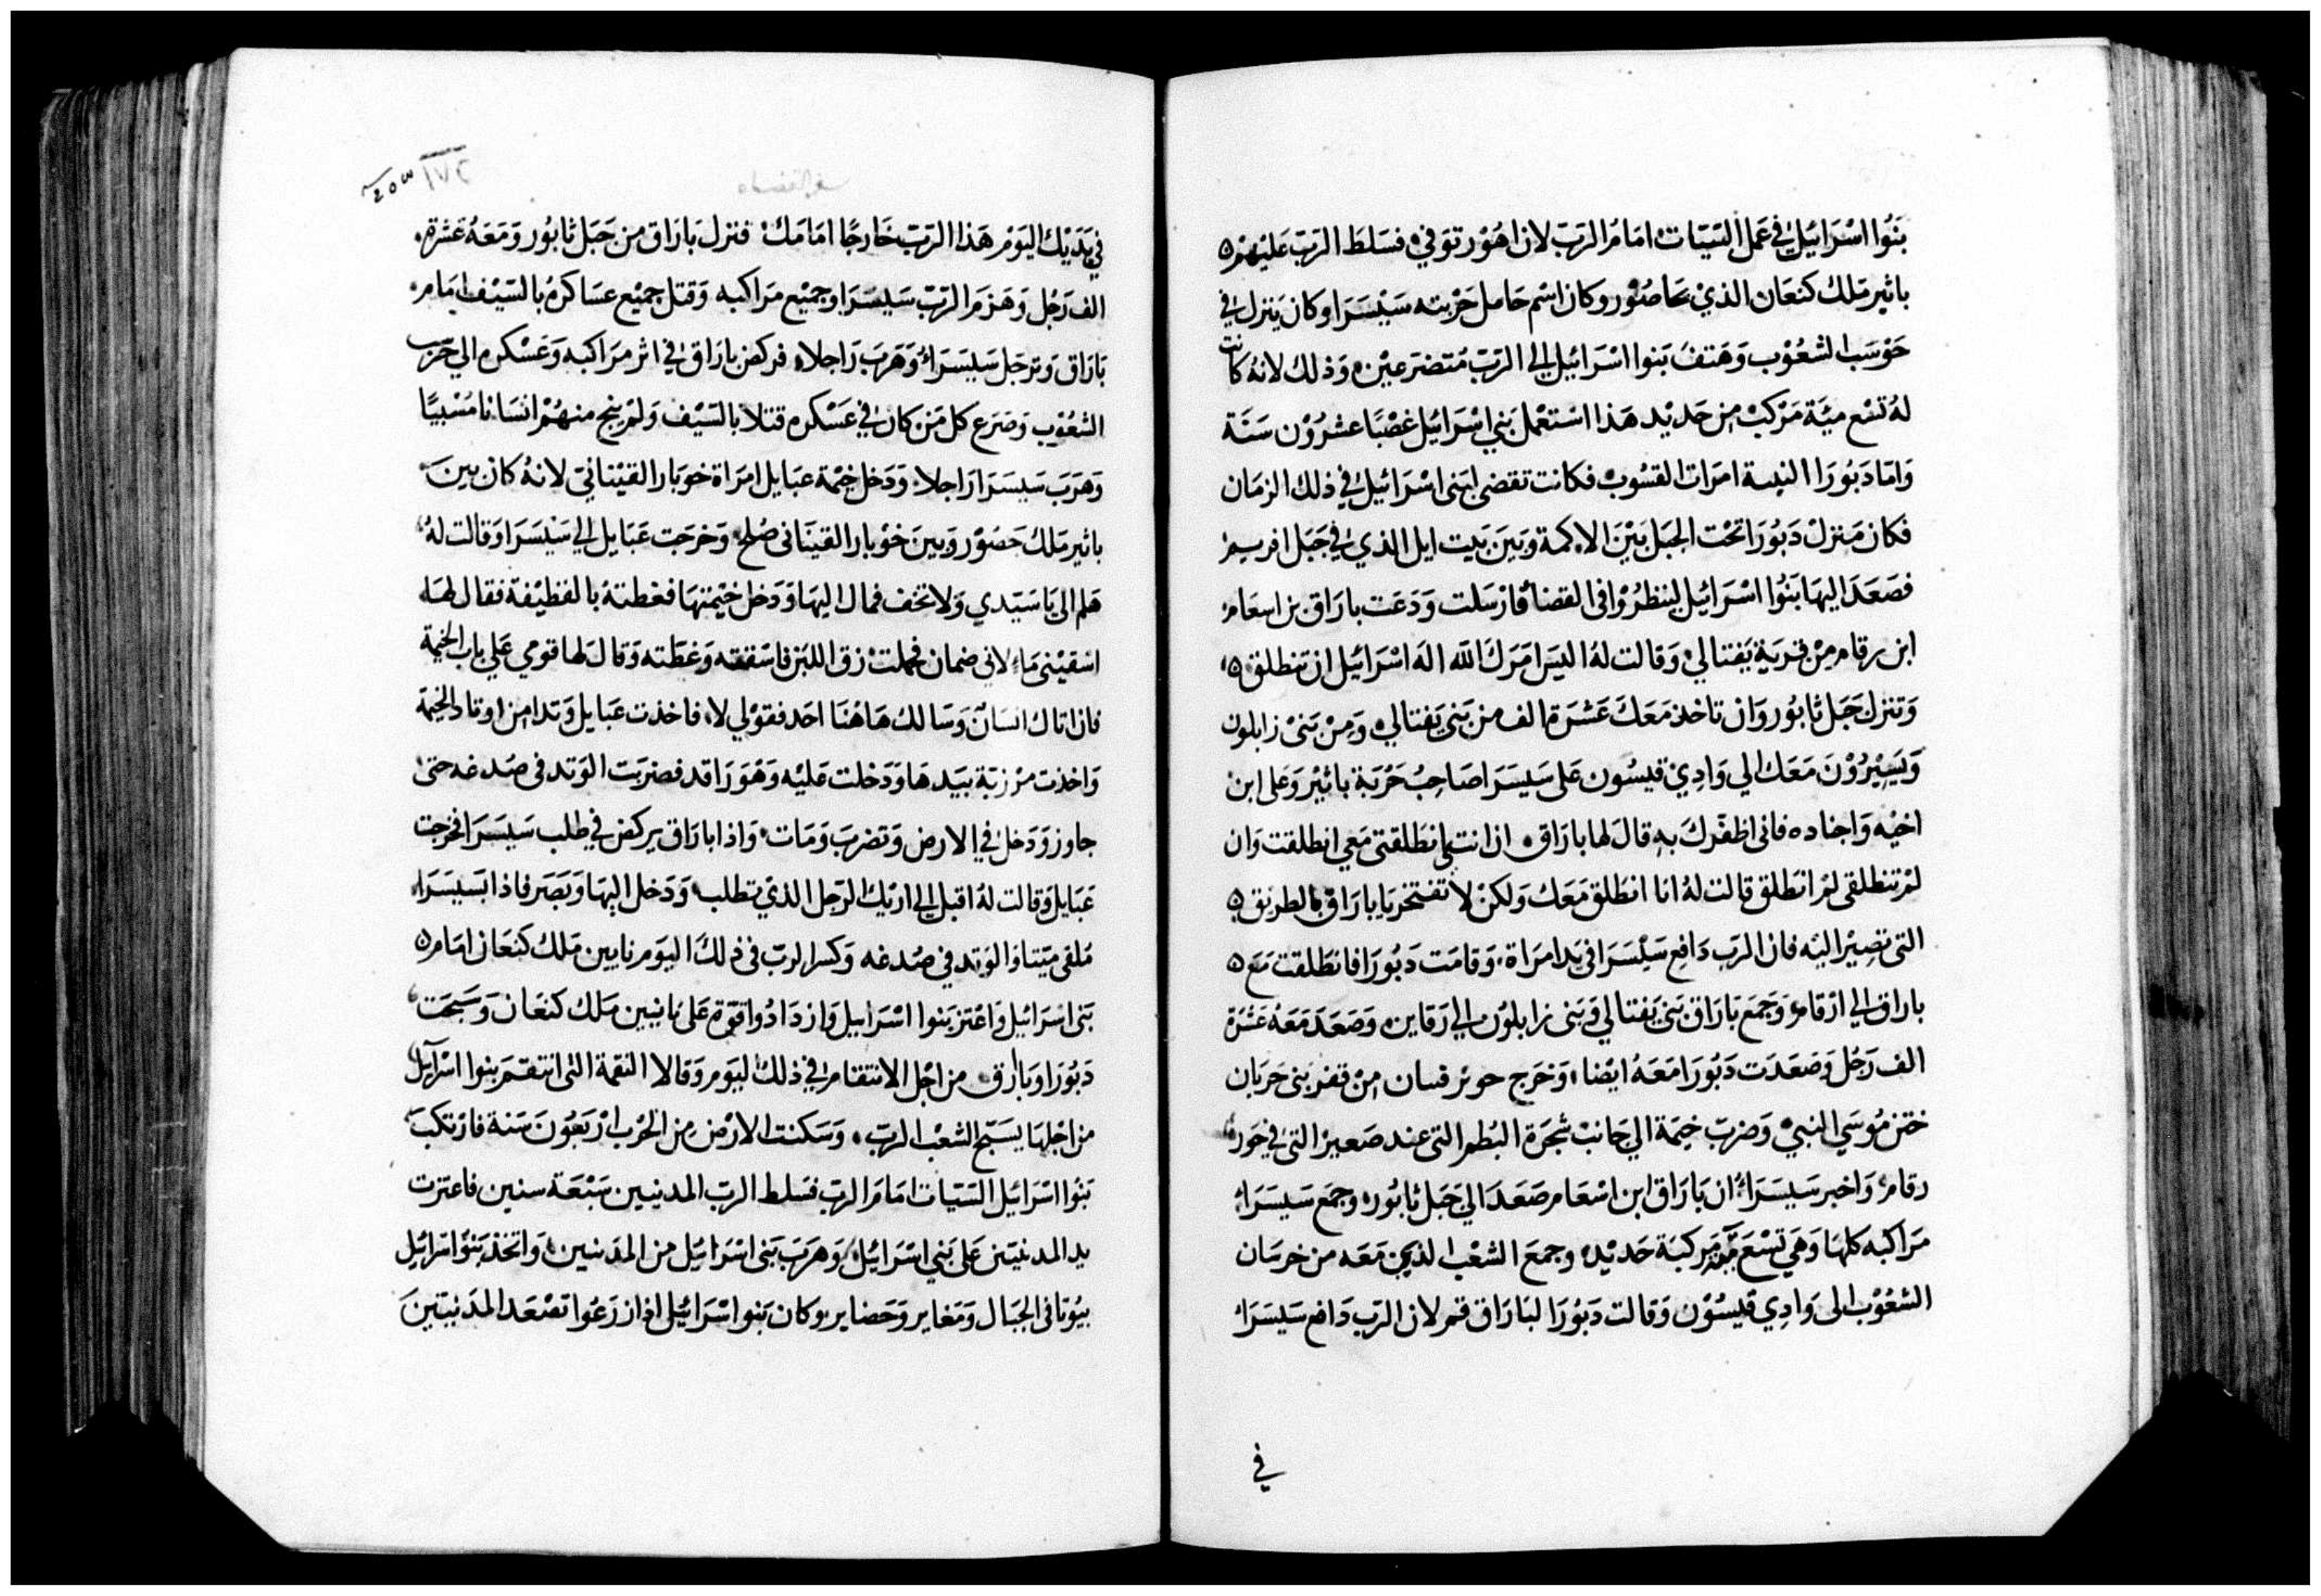 بَنُوا اسْرَائيل في عَمل السّيّات امَامُ الرَبّ لان اهُوْر توَفي فسَلطَ الرَبّ عَليْهمْ
باثير مَلك كنعَان الذيْ بحَاصُوْر وكان اسْم حَامل حَرْبته سَيْسَرَا وكان يَنزل في
حَوْسَب الشعُوْب وَهَتفَ بَنوا اسْرَائيل الي الرَبّ مُتضرَعيْن وَذلك لانهُ كانت
لهُ تسْع ميَّة مَرْكبْ مِن حَديْد هَذا اسْتعْمل بَني اسْرَائيل غصْبًا عشرُوْن سَنَة
وَامّا دَبُورَا النبية امرَات القسُوبْ فكانت تقضى لبَنى اسْرَائيل في ذلك الزمَان
فكان مَنزلْ دَبُورَا تحْت الجبَل بَيْنَ الاكمة وَبَين بَيت ايل الذي في جَبَل افريم
فصَعَدَ اليهَا بَنُوا اسْرَائيل لينظرُوْا في القضا فارْسَلت وَدَعَت بارَاق بن اسعَام
ابن رقام مِنْ قريَةِ يَفتالي وَقالت لهُ اليسَ امَرَكَ الله الهَ اسْرَائيل ان تنطلق
وَتنزل جَبَل ثابُور وَان تاخذ مَعَكَ عَشرَة الف من بَني يَفتالي وَمِنْ بَنىْ زابلون
وَيَسِيْرُوْنَ مَعَك الي وَادِيْ قيسُون عَلى سَيسَرَا صَاحِبُ حَرْبَة باثيْر وَعَلى ابن
اخيْه وَاجناده فانى اظفّركَ بهِ قالَ لهَا بارَاق ان انت انطَلقتى مَعي انطلقت وَان
لمْ تنطلقى لمْ انطَلق قالت لهُ انا انطَلق مَعَك وَلكنْ لا تفتخر يَا بارَاقْ بالطريق
التى تصِيْر اليْه فان الرَبّ دَافِع سَيْسَرَا فى يَد امرَاة وَقامَت دَبُورَا فانطَلقت مَعَ
باراق الي ارْقام وَجَمَع بَارَاق بَني يَفتالي وَبَنى زابلوُن الي رَقاين وَصَعَدَ مَعَهُ عَشرَة
الف رَجُل وَصَعَدَت دَبُورَا مَعَهُ ايْضا وَخرَج حوبر فسان مِنْ قفر بَنى حَربان
ختن مُوسَي النبيّ وَضربّ خيْمَة الي جَانبْ شجَرَة البُطم التى عند صَعير التى في حَور
رقام وَاخبر سَيسَرَا ان بَارَاق ابن اسْعَام صَعَدَ الي جَبَل ثابُور وجمَع سَيسَرَا
مَراكبه كلهَا وَهي تسْعَ مَيَّة مَركبَة حَديْد وجمَع الشعْب الذين مَعَه من خرسَان
الشعُوْب الى وَادِي قيْسُوْن وَقالت دَبُورَا لبَارَاق قم لان الرَبّ دَافع سَيسَرَا
في
سفر القضاه
١٧٢
في يَدَيْك اليَوْم هَذا الرَبّ خَارجًا امَامَكْ فنزل بَارَاق من جَبَل ثابُور وَمَعَهُ عَشرَة
الف رَجُل وَهَزمَ الرَبّ سَيسَرَا وجميْع مَراكبه وَقتل جميْع عسَاكرهُ بالسّيْف امَام
بَارَاق وَترَجَل سَيسَرَا وَهَربَ رَاجلا فركض بارَاق في اثر مَرَاكبه وَعَسْكره الي حَرَب
الشعُوْب وَصَرَع كل مَن كان في عَسْكره قتلا بالسّيْف وَلمْ ينج منهُمْ انسَانا مُسْبيًا
وَهَربَ سَيسَرَا رَاجلا وَدَخل خيْمة عبَايل امرَاة خوبَار القيْنانىّ لانهُ كان بين
باثير مَلكْ حَصُوْر وَبين خوْبار القينَانى صُلح وَخرَجَت عَبَايل الي سَيْسَرَا وَقالت لهُ
هَلم الي يَا سَيّدي وَلا تخف فمال اليهَا وَدَخل خيْمتهَا فغطتهُ بالقطيْفة فقال لهَا
اسْقيْنى مَاء لاني ضمان فحملتْ زق اللبَن فاسْقته وَغطّته وَقالَ لهَا قومي عَلي باب الخيْمة
فان اتاك انسَان وَسَالك هَاهُنَا احَد فقوْلي لا فاخذت عبَايل وَتدا من اوتاد الخيمَة
وَاخذت مرْزبَة بيَدهَا وَدَخلت عَليْه وَهْوَ رَاقد فضربَت الوَتد فى صُدغه حتى
جاوز وَدَخل في الارض وَتضربَ وَمَات وَاذا بارَاق يركض في طلب سَيسَرَا فخرجت
عَبَايل وَقالت لهُ اقبل الي اريْك الرَجل الذيْ تطلب وَدَخل اليهَا وَبَصَر فاذا بسَيسَرَا
مُلقى ميّتا وَالوَتد في صُدغه وَكسر الربّ فى ذلك اليَوم نابين مَلك كنعَان امَام
بَنى اسْرَائيل وَاعْتز بَنوا اسْرَايل وَازدَادُوا قوّة عَلى نابيين مَلك كنعَان وَسَبَّحَت
دَبُورَا وَبارَاق من اجْل الانتقام في ذلك اليَوم وَقالا النقمَة التى انتقمَ بنوا اسْرآئل
من اجْلهَا يسَبّح الشعْب الربّ وَسَكنت الارْض من الحَرْب ارْبَعُونَ سَنة فارْتكبَ
بَنُوا اسْرَائيل السَيّات امَامَ الربّ فسَلط الربّ المدنيين سَبْعَة سنين فاعتزت
يد المدنيَين عَلى بَني اسْرَائيل وَهَرَبَ بَنى اسْرَائيل من المدَنيين وَاتخذ بَنوُا اسْرائيل
بيُوتا فى الجبَال وَمَغاير وَحَضاير وكان بَنوا اسْرَائيل اذا زرَعُوا تصْعَد المدَنييّنَ